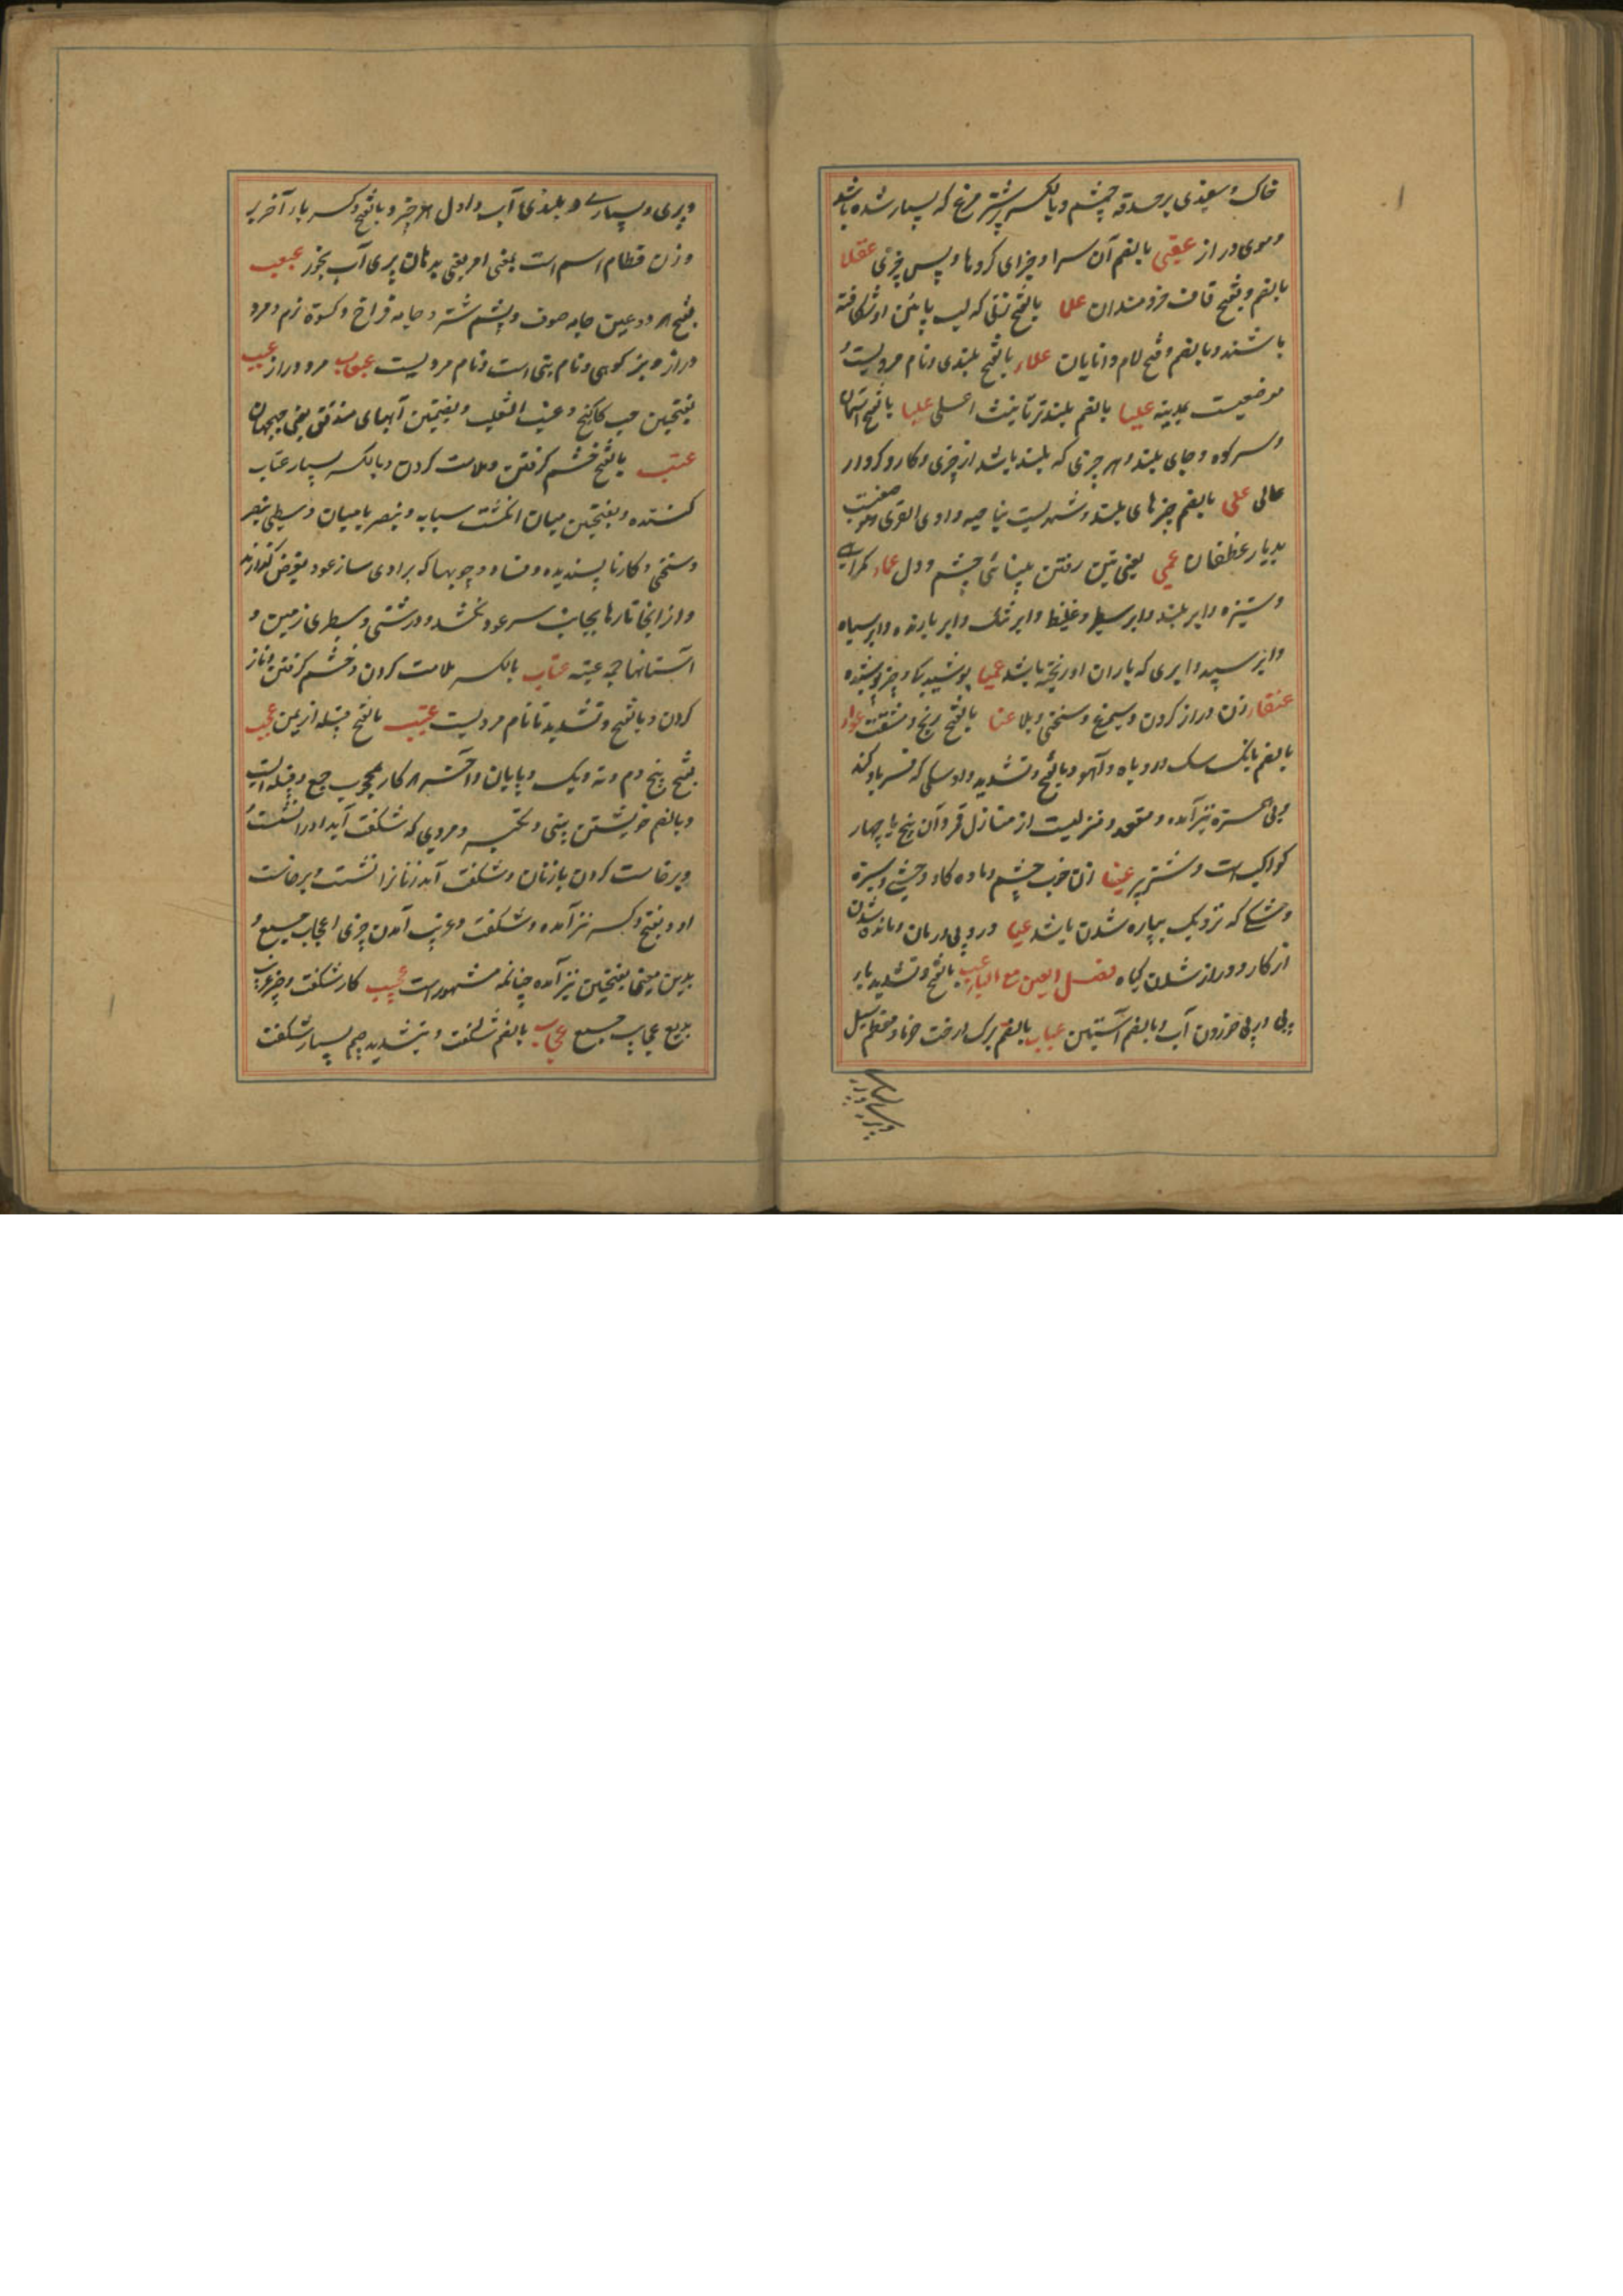 خاک و سفیدی بر حدقه چشم و بالکسر شتر مرغ که بسیار شده باشد
و موی دراز عقبی بالضم آن سرا و جزای کردها و پس چیزی عقلا
بالضم و بفتح قاف خردمندان علما بالفتح زنی که لب پائین او شکافته
باشند و بالضم و فتح لام دانایان علاء بالفتح بلندی و نام مردیست و
موضعیست بمدینه علیا بالضم بلندتر تانیث اعلی علیا بالفتح آسمان
و سر کوه و جای بلند و هر چیزی که بلند باشد از چیزی و کار و کردار
عالی علی بالضم چیزهای بلند و شهریست بناحیه وادی القری و موضعیست
بدیار غطفان عمی بفتحتین رفتن بینائی چشم و دل عماء گمراهی
و ستیزه و ابر بلند و ابر سطبر و غلیظ و ابر تنک و ابر بارنده و ابر سیاه
و ابر سپید و ابری که باران او ریخته باشد عمیا پوشیده
عنقاء زن دراز کردن و سیمرغ و سختی و بلا عنا بالفتح رنج و مشقت عواء
بالضم بانک سک و روباه و آهو و بالفتح و تشدید واو سکی که فریاد کند
و بی همزه نیز آمده و مقعد و منزلیست از منازل قمر و آن پنج یا چهار
کواکب است و شتر پیر عینا زن خوب چشم و ماده کاو وحشی و سبزه
و مشکی که نزدیک بپاره شدن باشد عیا درد بی درمان و مانده شدن
از کار و دراز شدن کیاه فصل العین مع الباء عب بالفتح و تشدید باء
پی در پی خوردن آب و بالضم آستین عباب بالضم برک درخت خرما و معظم سیل
و پری و بسیاری
و پری و بسیاری و بلندی آب و اول هر چیز و بالفتح و کسر باء آخر بر
وزن قطام اسم است بمعنی امر یعنی بدهان پری آب بخور عبعب
بفتح هر دو عین جامه صوف و پشم شتر و جامه فراخ و کسوة نرم و مرد
دراز و بز کوهی و نام بتی است و نام مردیست عبعاب مرد دراز عبب
بفتحتین حب کاکنج و عنب الثعلب و بضمتین آبهای متدفق یعنی جهجهان
عتب بالفتح خشم کرفتن و ملامت کردن و بالکسر بسیار عتاب
کننده و بفتحتین میان انکشت سبابه و بنصر یا میان وسطی و بنصر
و سختی و کار ناپسندیده و فساد و چوبها که بر روی ساز عود بعرض کذارند
و از آنجا تارها بجانب سر عود کشند و درشتی و سطبری زمین و
آستانها جمع عتبه عتاب بالکسر ملامت کردن و خشم کرفتن و ناز
کردن و بالفتح و تشدید تا نام مردیست عتیب بالفتح قبیله از یمن عجب
بفتح بیخ دم و ته ریک و پایان و آخر هر کار عجوب جمع و قبیله ایست
و بالضم خویشتن بینی و تکبر و مردی که شکفت آید او را نشست و
برخاست کردن با زنان و شکفت آید زنانرا نشست و برخاست
او و بفتح و کسر نیز آمده و شکفت و عجیب آمدن چیزی اعجاب جمع و
بدین معنی بفتحتین نیز آمده چنانکه مشهور است عجیب کار شکفت و چیز غریب
بدیع عجایب جمع عجاب بالضم شکفت و بتشدید جیم بسیار شکفت